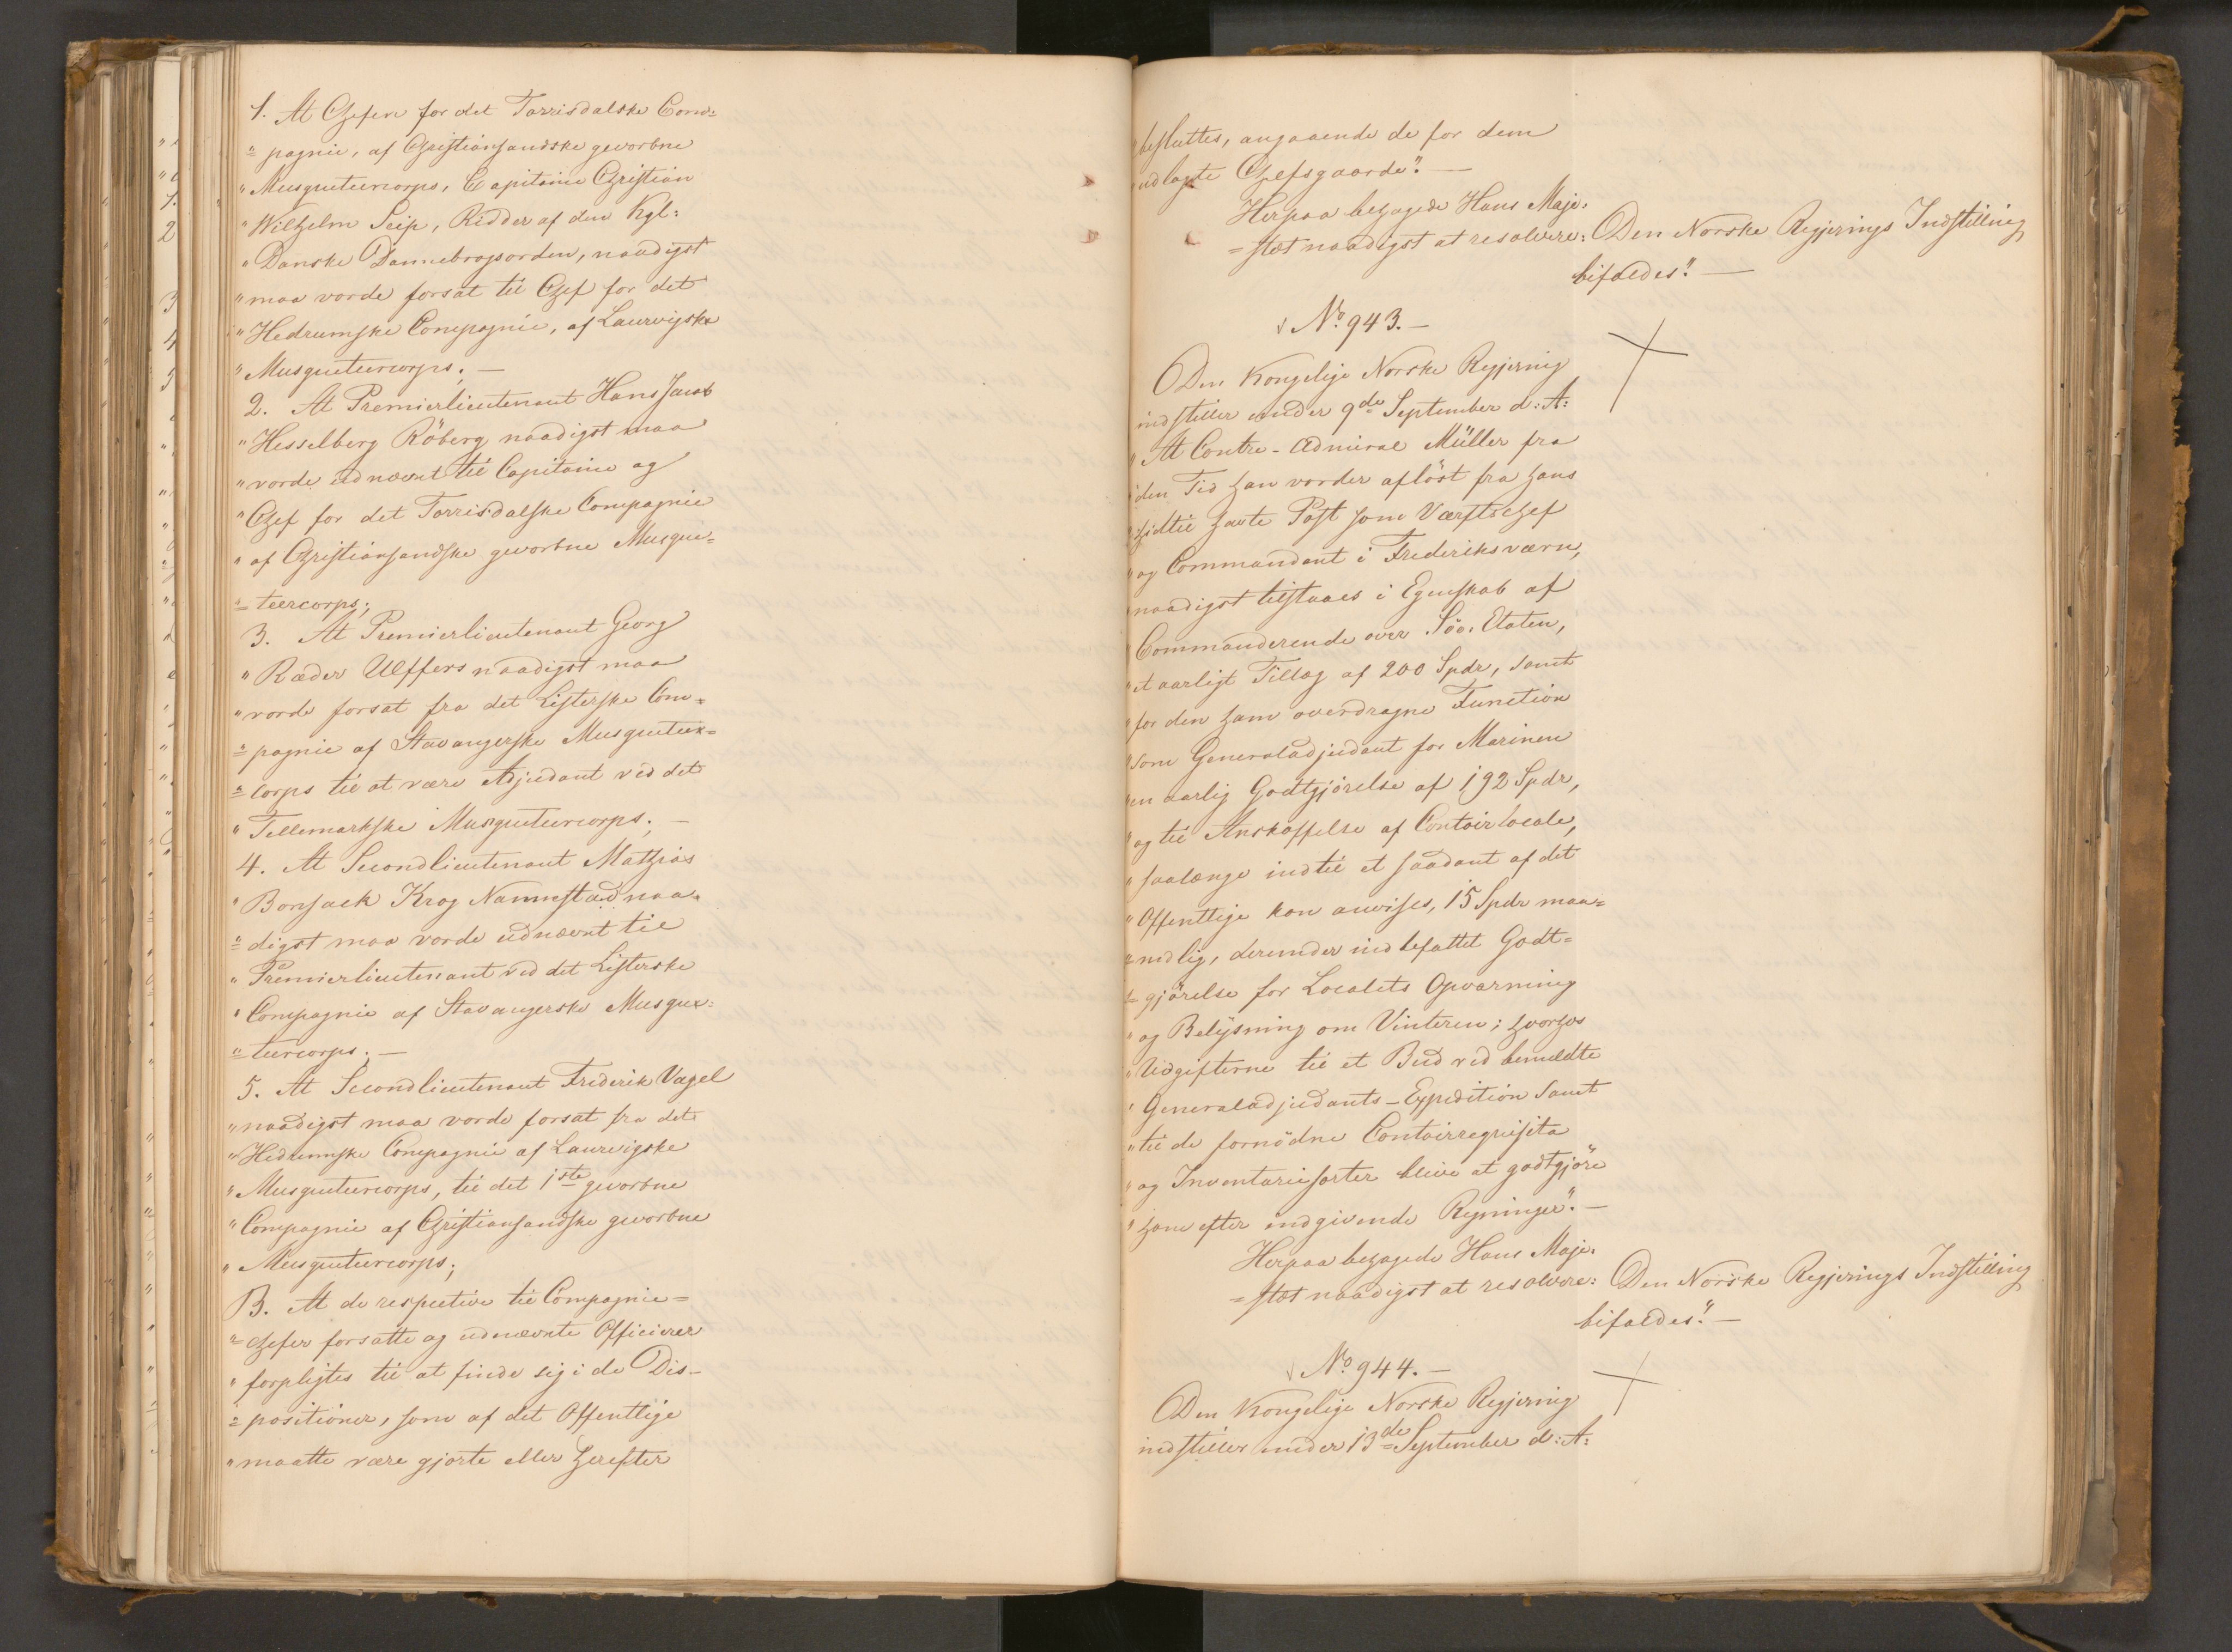 1. At Chefen for det Torrisdalske Com=
"=pagnie, af Christiansandske gevorbne
"Musqueteercorps, Capitaine Christian
"Wilhelm Seip, Ridder af den Kgl:
"Danske Dannebrogsorden, naadigst
"maa vorde forsat til Chef for det
"Hedrumske Compagnie, af Laurvigske
"Musqueteercorps; —
2. At Premierlieutenant Hans Jacob
"Hesselberg Röberg naadigst maa
"vorde udnævnt til Capitaine og
"Chef for det Torrisdalske Compagnie
"af Christiansandske gevorbne Musque=
"=teercorps;
3. At Premierlieutenant Georg
"Ræder Ulffers naadigst maa
"vorde forsat fra det Listerske Com=
"=pagnie af Stavangerske Musqueteer=
"=corps til at være Adjudant ved det
"Tellemarkske Musqueteercorps; —
4. At Secondlieutenant Mathias
"Bonsack Krog Nannestad naa=
"=digst maa vorde udnævnt til
"Premierlieutenant ved det Listerske
"Compagnie af Stavangerske Musque=
"=teercorps; —
5. At Secondlieutenant Frederik Vogel
"naadigst maa vorde forsat fra det
"Hedrumske Compagnie af Laurvigske
"Musqueteercorps, til det 1ste gevorbne
"Compagnie af Christiansandske gevorbne
"Musqueteercorps;
B. At de respective til Compagnie=
"=chefer forsatte og udnævnte Officierer
"forpligtes til at finde sig i de Dis-
"=positioner, som af det Offentlige
"maatte være gjorte eller herefter
"besluttes, angaaende de for dem
"udlagte Chefsgaarde". —
Herpaa behagede Hans Maje=
=stæt naadigst at resolvere: Den Norske Regjerings Indstilling
bifaldes". —
No. 943. —
Den Kongelige Norske Regjering
indstiller under 9de September d: A:
"At Contre-Admiral Müller fra
"den Tid han vorder aflöst fra hans
"hidtil havte Post som Værftschef
"og Commandant i Frederiksværn,
"naadigst tilstaaes i Egenskab af
"Commanderende over Söe-Etaten,
"et aarligt Tillæg af 200 Spdr, samt
"for den ham overdragne Function
"som Generaladjudant for Marinen
"en aarlig Godtgjörelse af 192 Spdr,
"og til Anskaffelse af Contoirlocale,
"saalænge indtil et saadant af det
"Offentlige kan anvises, 15 Spdr maa=
"=nedlig, derunder indbefattet Godt=
"=gjörelse for Localets Opvarming
"og Belysning om Vinteren; hvorhos
"Udgifterne til et Bud ved bemeldte
"Generaladjudants-Expedition samt
"til de fornödne Contoirreqvisita
"og Inventariesorter blive at godtgjöre
"ham efter indgivende Regninger". —
Herpaa behagede Hans Maje=
=stæt naadigst at resolvere: Den Norske Regjerings Indstilling
bifaldes". —
No. 944. —
Den Kongelige Norske Regjering
indstiller under 13de September d: A: